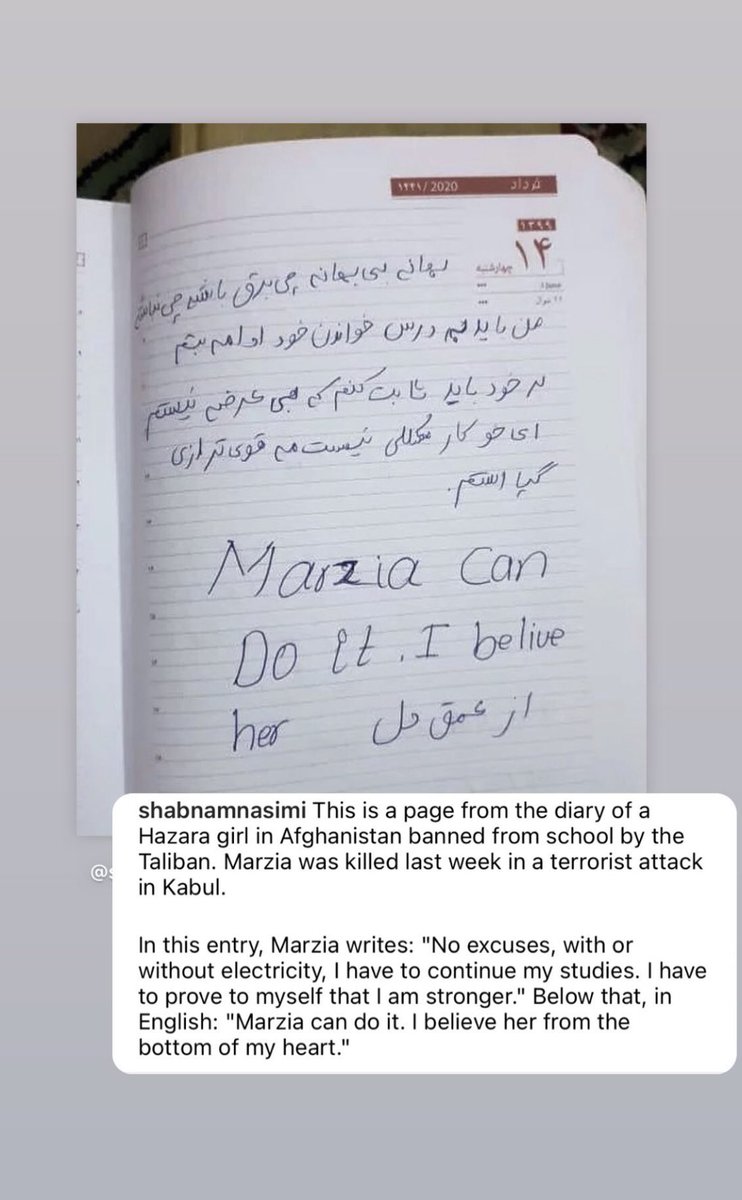 ۱۴۴۱/2020 خرداد
۱۳۹۹
۱۴
چهارشنبه
بهانه بی بهانه چی برق باشد چی نباشد
من باید به درس خواندن خود ادامه بتم
به خود باید ثابت کنم که بی عرضه نیستم
ای خو کار مشکلی نیست مه قوی تر ازی
گپا استم.
Marzia Can
Do It. I belive
her از عمق دل
@s
shabnamnasimi This is a page from the diary of a
Hazara girl in Afghanistan banned from school by the
Taliban. Marzia was killed last week in a terrorist attack
in Kabul.
In this entry, Marzia writes: "No excuses, with or
without electricity, I have to continue my studies. I have
to prove to myself that I am stronger." Below that, in
English: "Marzia can do it. I believe her from the
bottom of my heart."